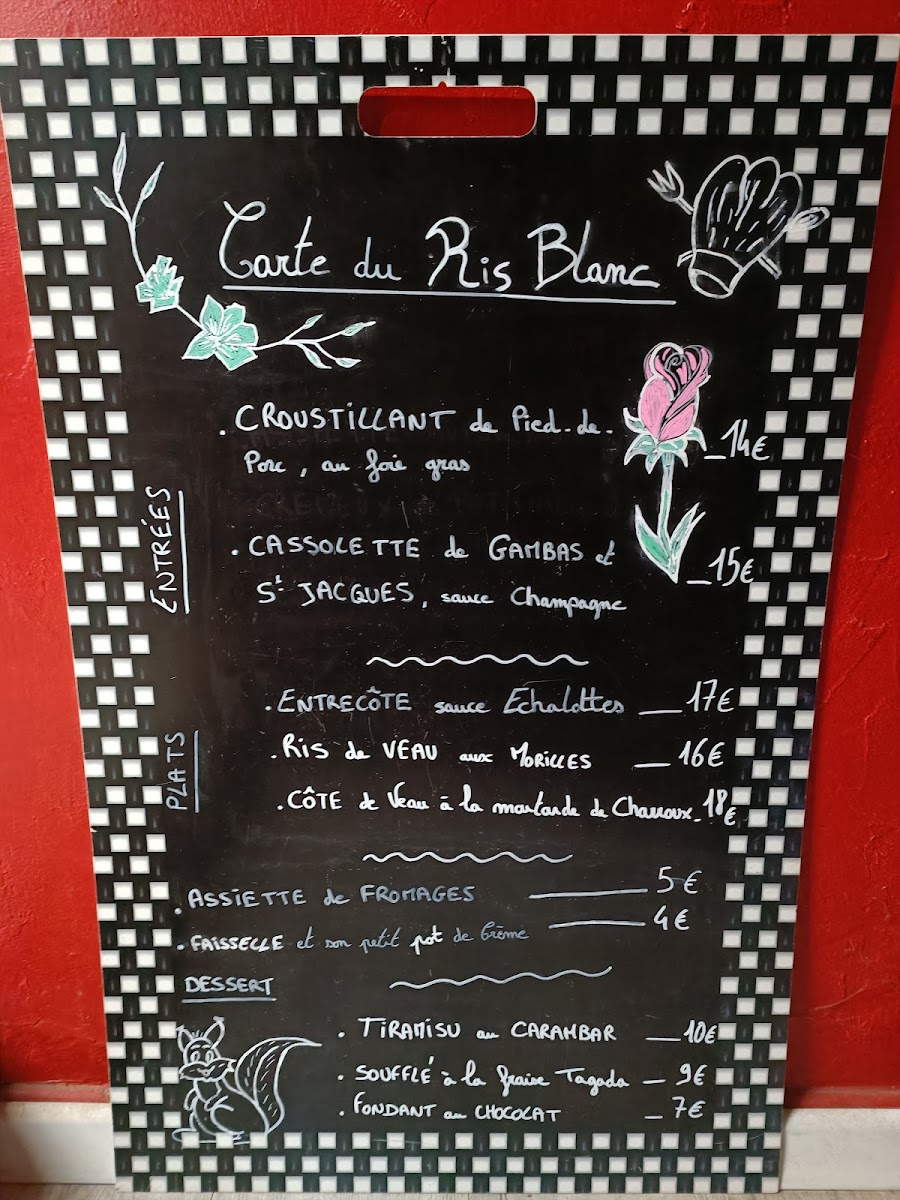 Carte du Ris Blanc
ENTRÉES
. CROUSTILLANT de Pied-de- _14€
Porc, au foie gras
. CASSOLETTE de GAMBAS et _15€
St JACQUES, sauce Champagne
PLATS
. ENTRECÔTE sauce Echalottes _ 17€
. RIS de VEAU aux MORILLES _ 16€
. CÔTE de Veau à la moutarde de Charroux _ 18€
. ASSIETTE de FROMAGES _ 5€
. FAISSELLE et son petit pot de Crème _ 4€
DESSERT
. TIRAMISU au CARAMBAR _ 10€
. SOUFFLÉ à la fraise Tagada _ 9€
. FONDANT au CHOCOLAT _ 7€